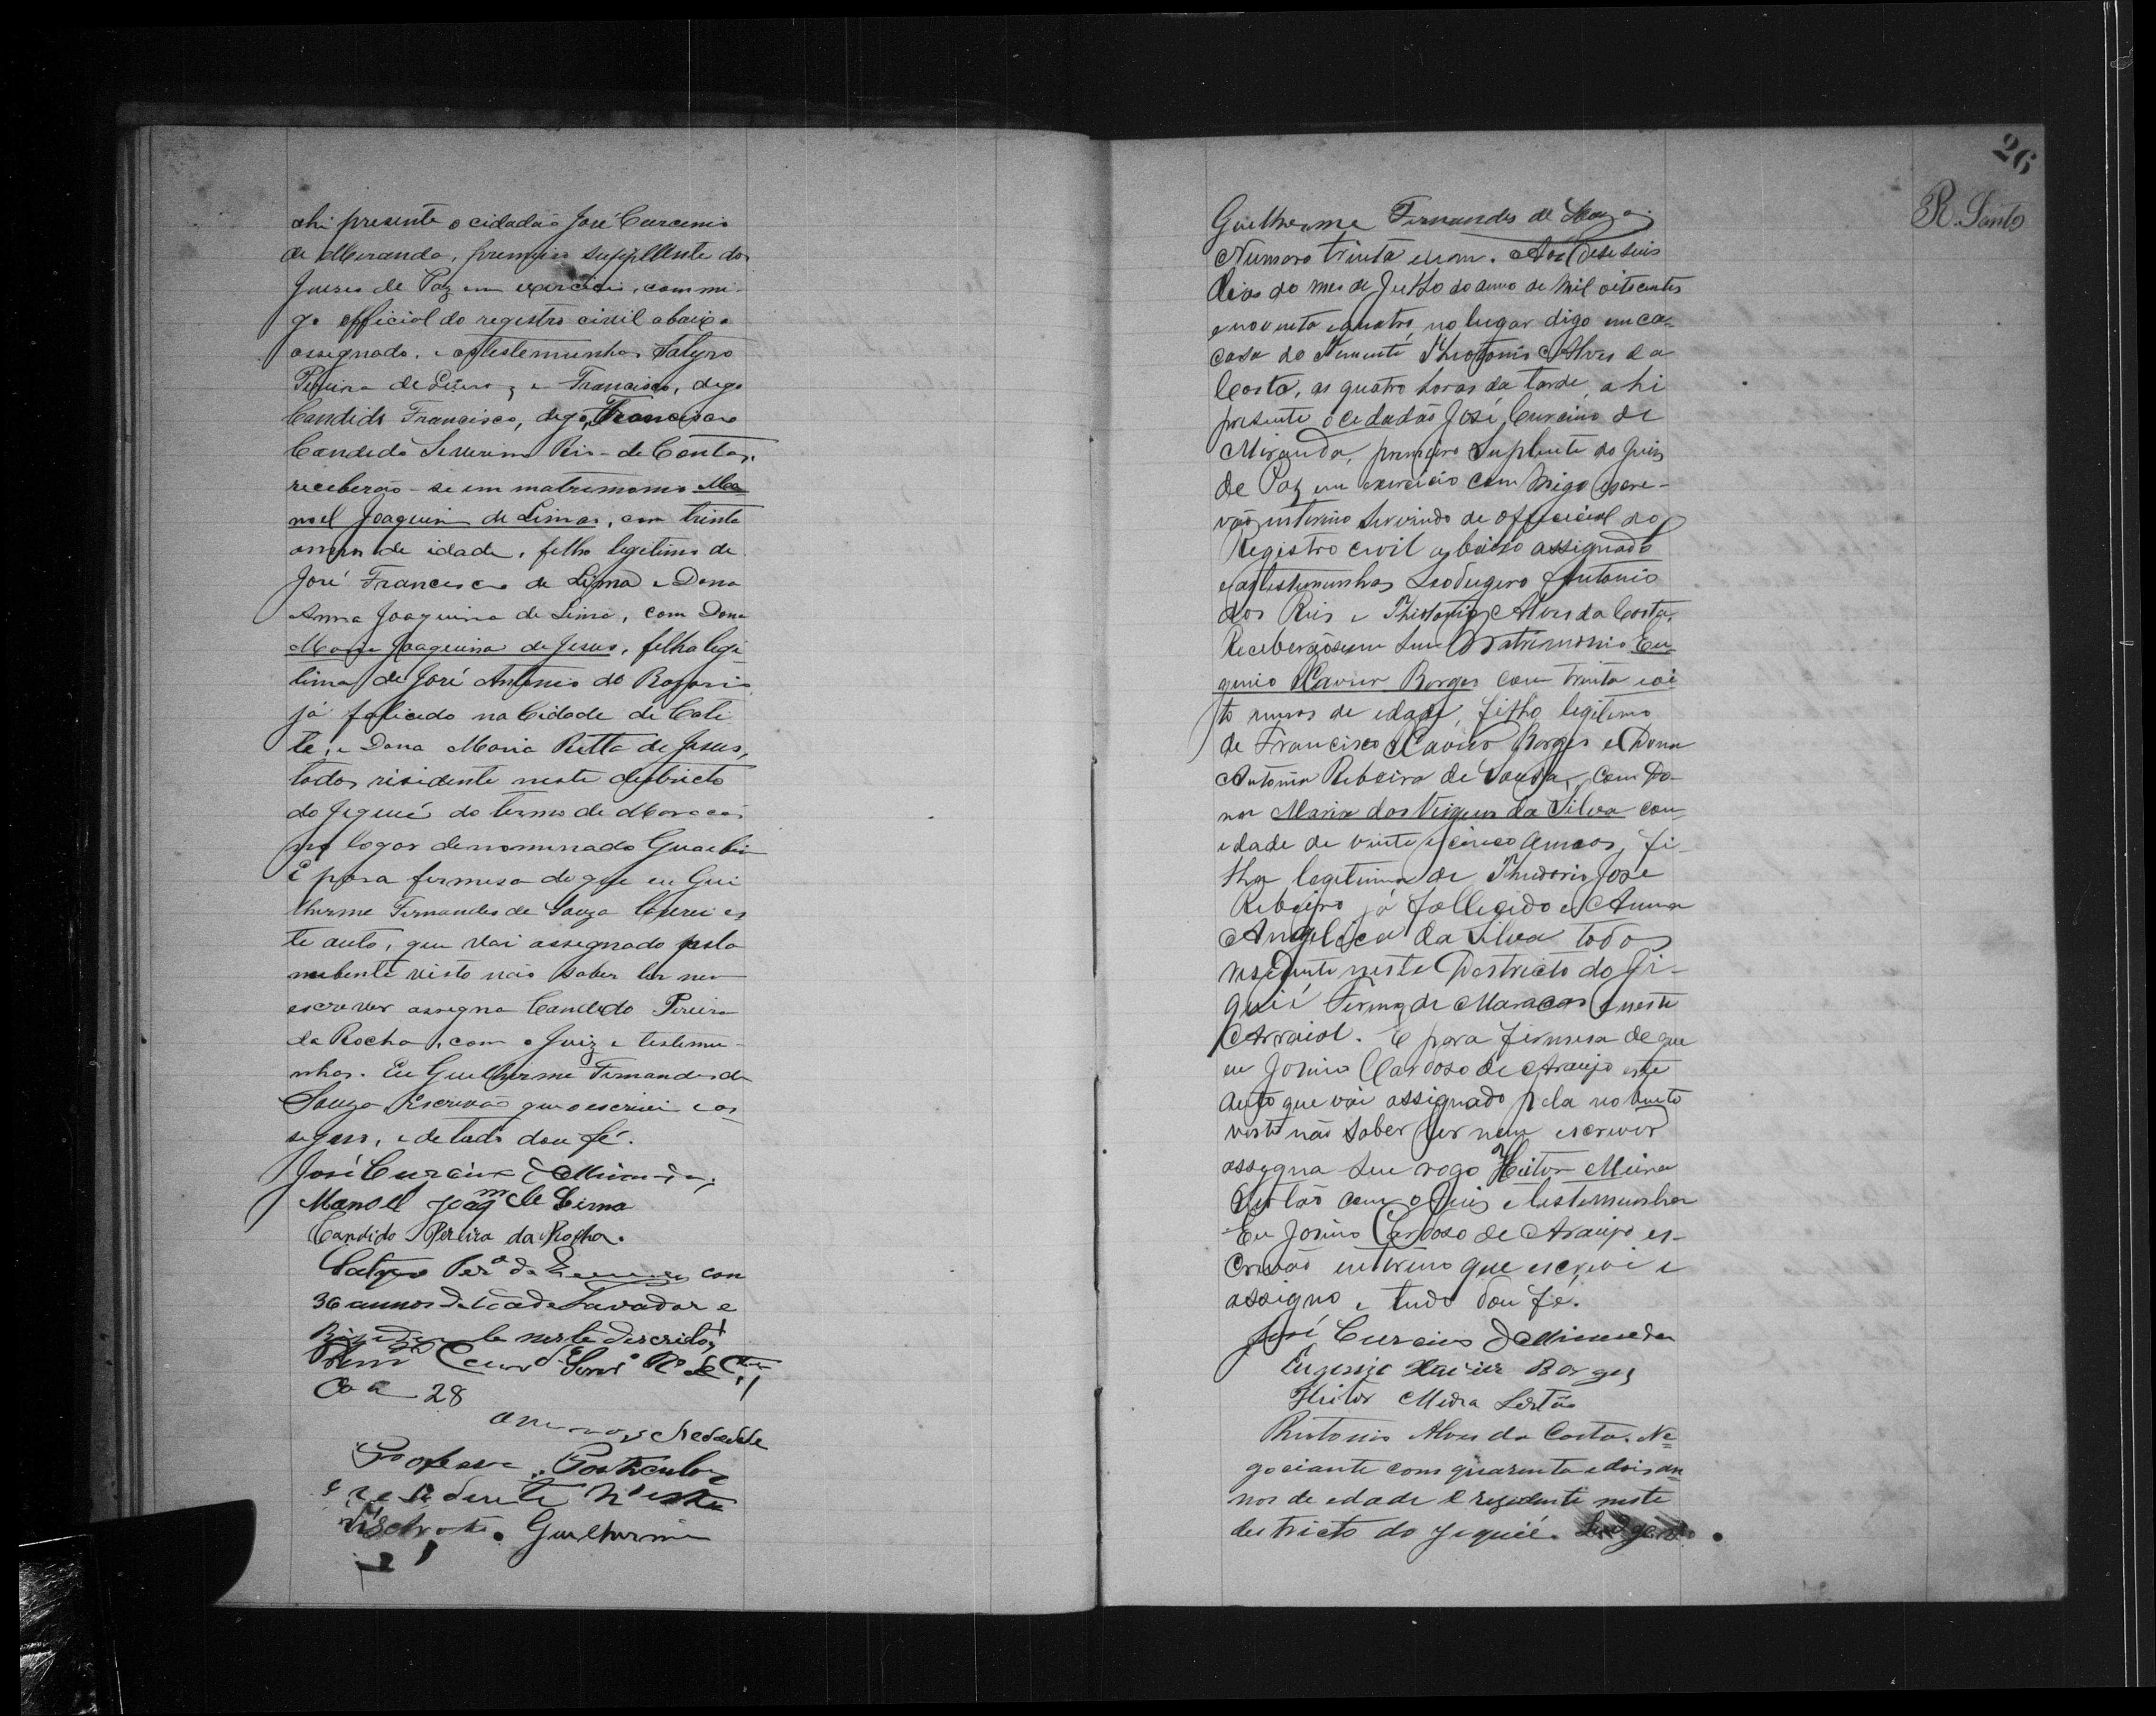 ahi presente o cidadão José Curcenio
de Miranda, premeiro supplllente do
Juizes de Paz em exercicio, commi-
go official do registro civil abaixo
assegnado, e as testemunhas Satyro
Pereira de e Francisco, digo
Candido Francisco, digo, Francisco
Candedo Severino Rio-de Contas,
receberão-se em matremonio Ma
noel Joaquim de Limas, com trinta
annos de idade, filho legitimo de
José Francisco de Lima e Dona
Anna Joaquina de Lima, com Dona
Maria Joaquina de Jesus, filha legi-
tima de José Antonio do Rosario
já falicedo na Cidade de Cati
te, e Dona Maria Ritta de Jesus,
todos risidente neste destricto
do Jequié do termo de Maracás
no logar denominado
E para fermesa do que eu Gui
lherme Fernandes de Souza lavrei es
te auto, que vai assegnado pela
nubente visto não saber ler nem
escrever assegna Candedo Pereira
da Rocha, com o Juiz e testemu-
nhas. Eu Guilherme Fernandes de
Souza, Escrivão que o escrivi e as
segno, e de tudo dou fé.
José Curcino de Miranda
Manoel Joaqm de Lima
Candido Pereira da Rocha.
Satyro Perª de com
36 annos de idade Lavador e
Rizidente neste descrito
28
annos de edade
Professor Particular
e residente n'este
districto. Guilherme
26
R. Santo
Guilherme Fernandes de Souza
Numero trinta e um. Aos deseseis
dias do mes de Julho do anno de mil oitocentos
e noventa e quatro, no lugar digo em ca-
casa do Tenente Theotonio Alves da
Costa, as quatro horas da tarde, ahi
presente o cedadão José Curcino de
Miranda, premeiro Suplente do Juis
de Paz em exercicio com migo escre-
vão enterino servindo de official do
Registro civil abaixo assignado
e as testemunhas Leodugero Antonio
dos Reis e Theotonio Alves da Costa,
Receberãose em seu Matrimonio Eu-
genio Xavier Borges com trinta e oi-
to annos de edade, filho legitimo
de Francisco Xavier Borges e Dona
Antonia Ribeira de Sousa, com Do-
na Maria das Virgens da Silva com
edade de vinte e cinco annos, fi-
lha legitima de Theodorio José
Ribeiro já fallecido e Anna
Angelica da Silva todos
residente neste Destricto do Ji-
quié Termo de Maracas e neste
Arraial. E para firmesa de que
eu Jonino Cardoso de Araujo este
auto que vai assignado pela nobente
visto não saber ler nem escrever
assegna seu rogo Heitor Meira
Sertão com o Juis e testemunha
Eu Jonino Cardoso de Araujo es-
crivão enterino que escrevi e
assigno e tudo dou fé.
José Curcino de Miranda
Eugenio Xavier Borges
Heitor Meira Sertão
Alves da Costa. Ne-
gociante com quarenta e dois an-
nos de edade e rezidente neste
destricto do Jequié.